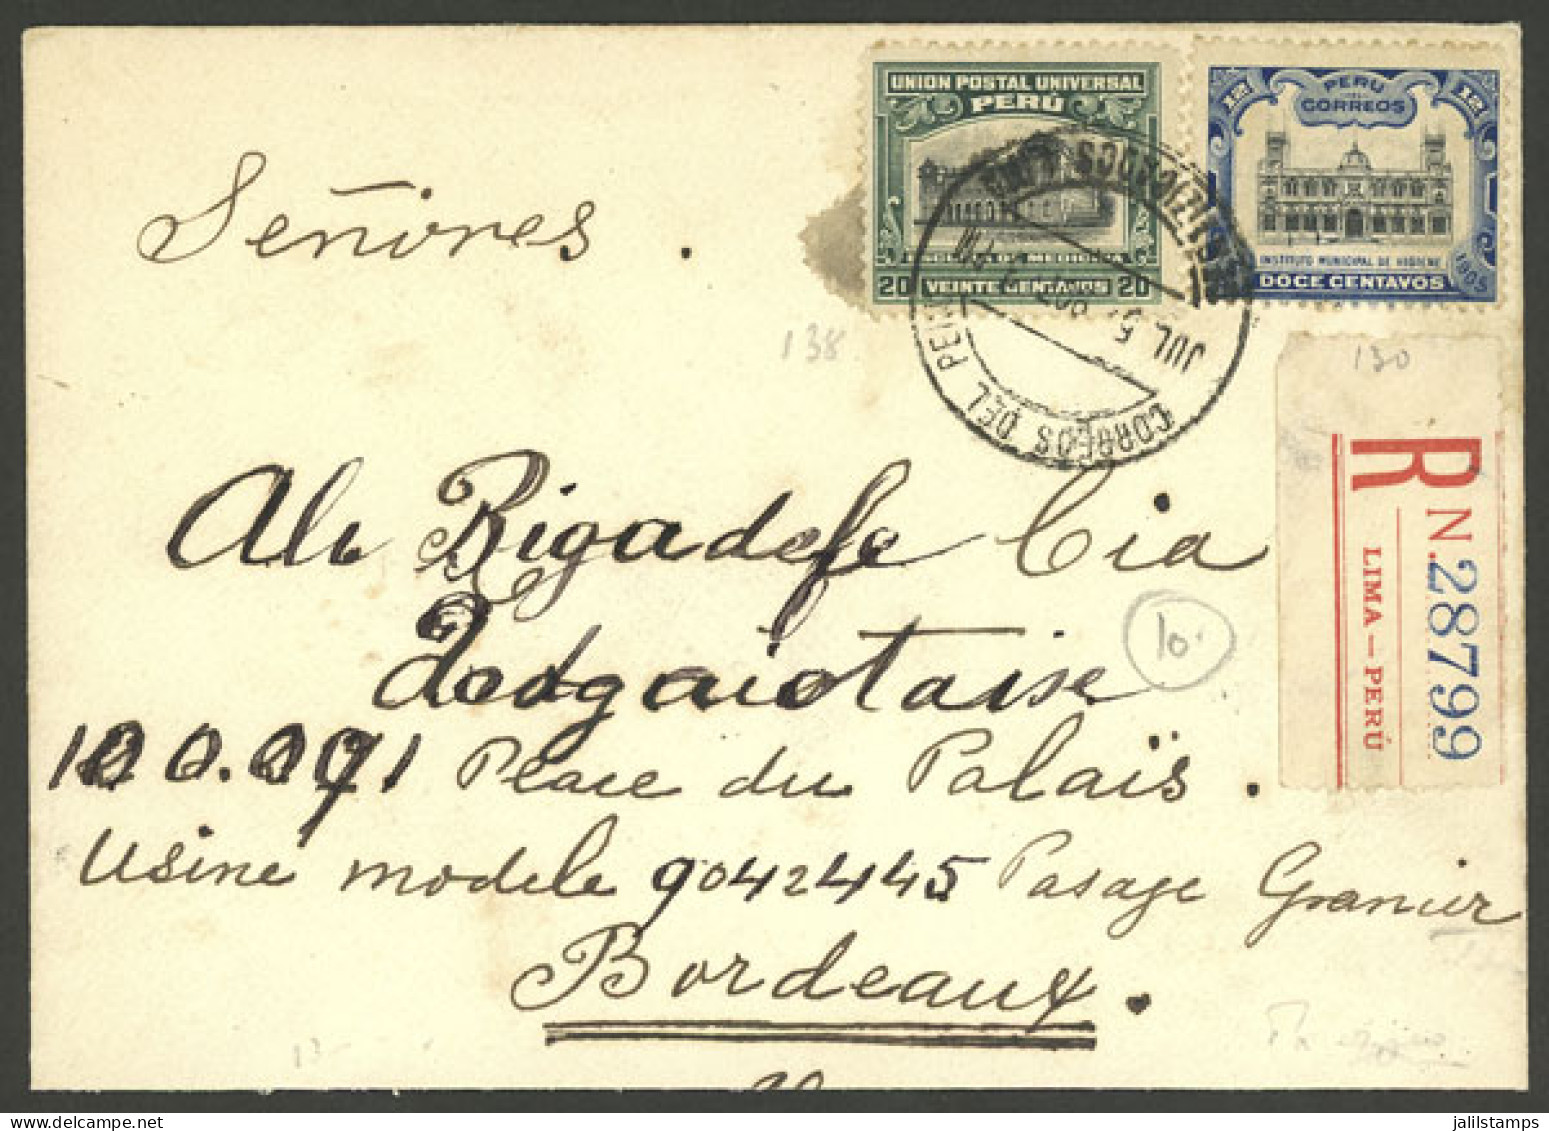 UNION POSTAL UNIVERSAL
PERÚ
ESCUELA DE MEDICINA
20 VEINTE CENTAVOS 20
12 PERU 12
CORREOS
INSTITUTO MUNICIPAL DE HIGIENE
1905
DOCE CENTAVOS
LIMA
JUL 5
PM
CORREOS DEL PERU
Señores.
138
130
R N. 28799
LIMA — PERÚ
Cia
10.
Place du Palaïs.
Usine modele 9042445 Pasage Granier
Bordeaux.
jalilstamps